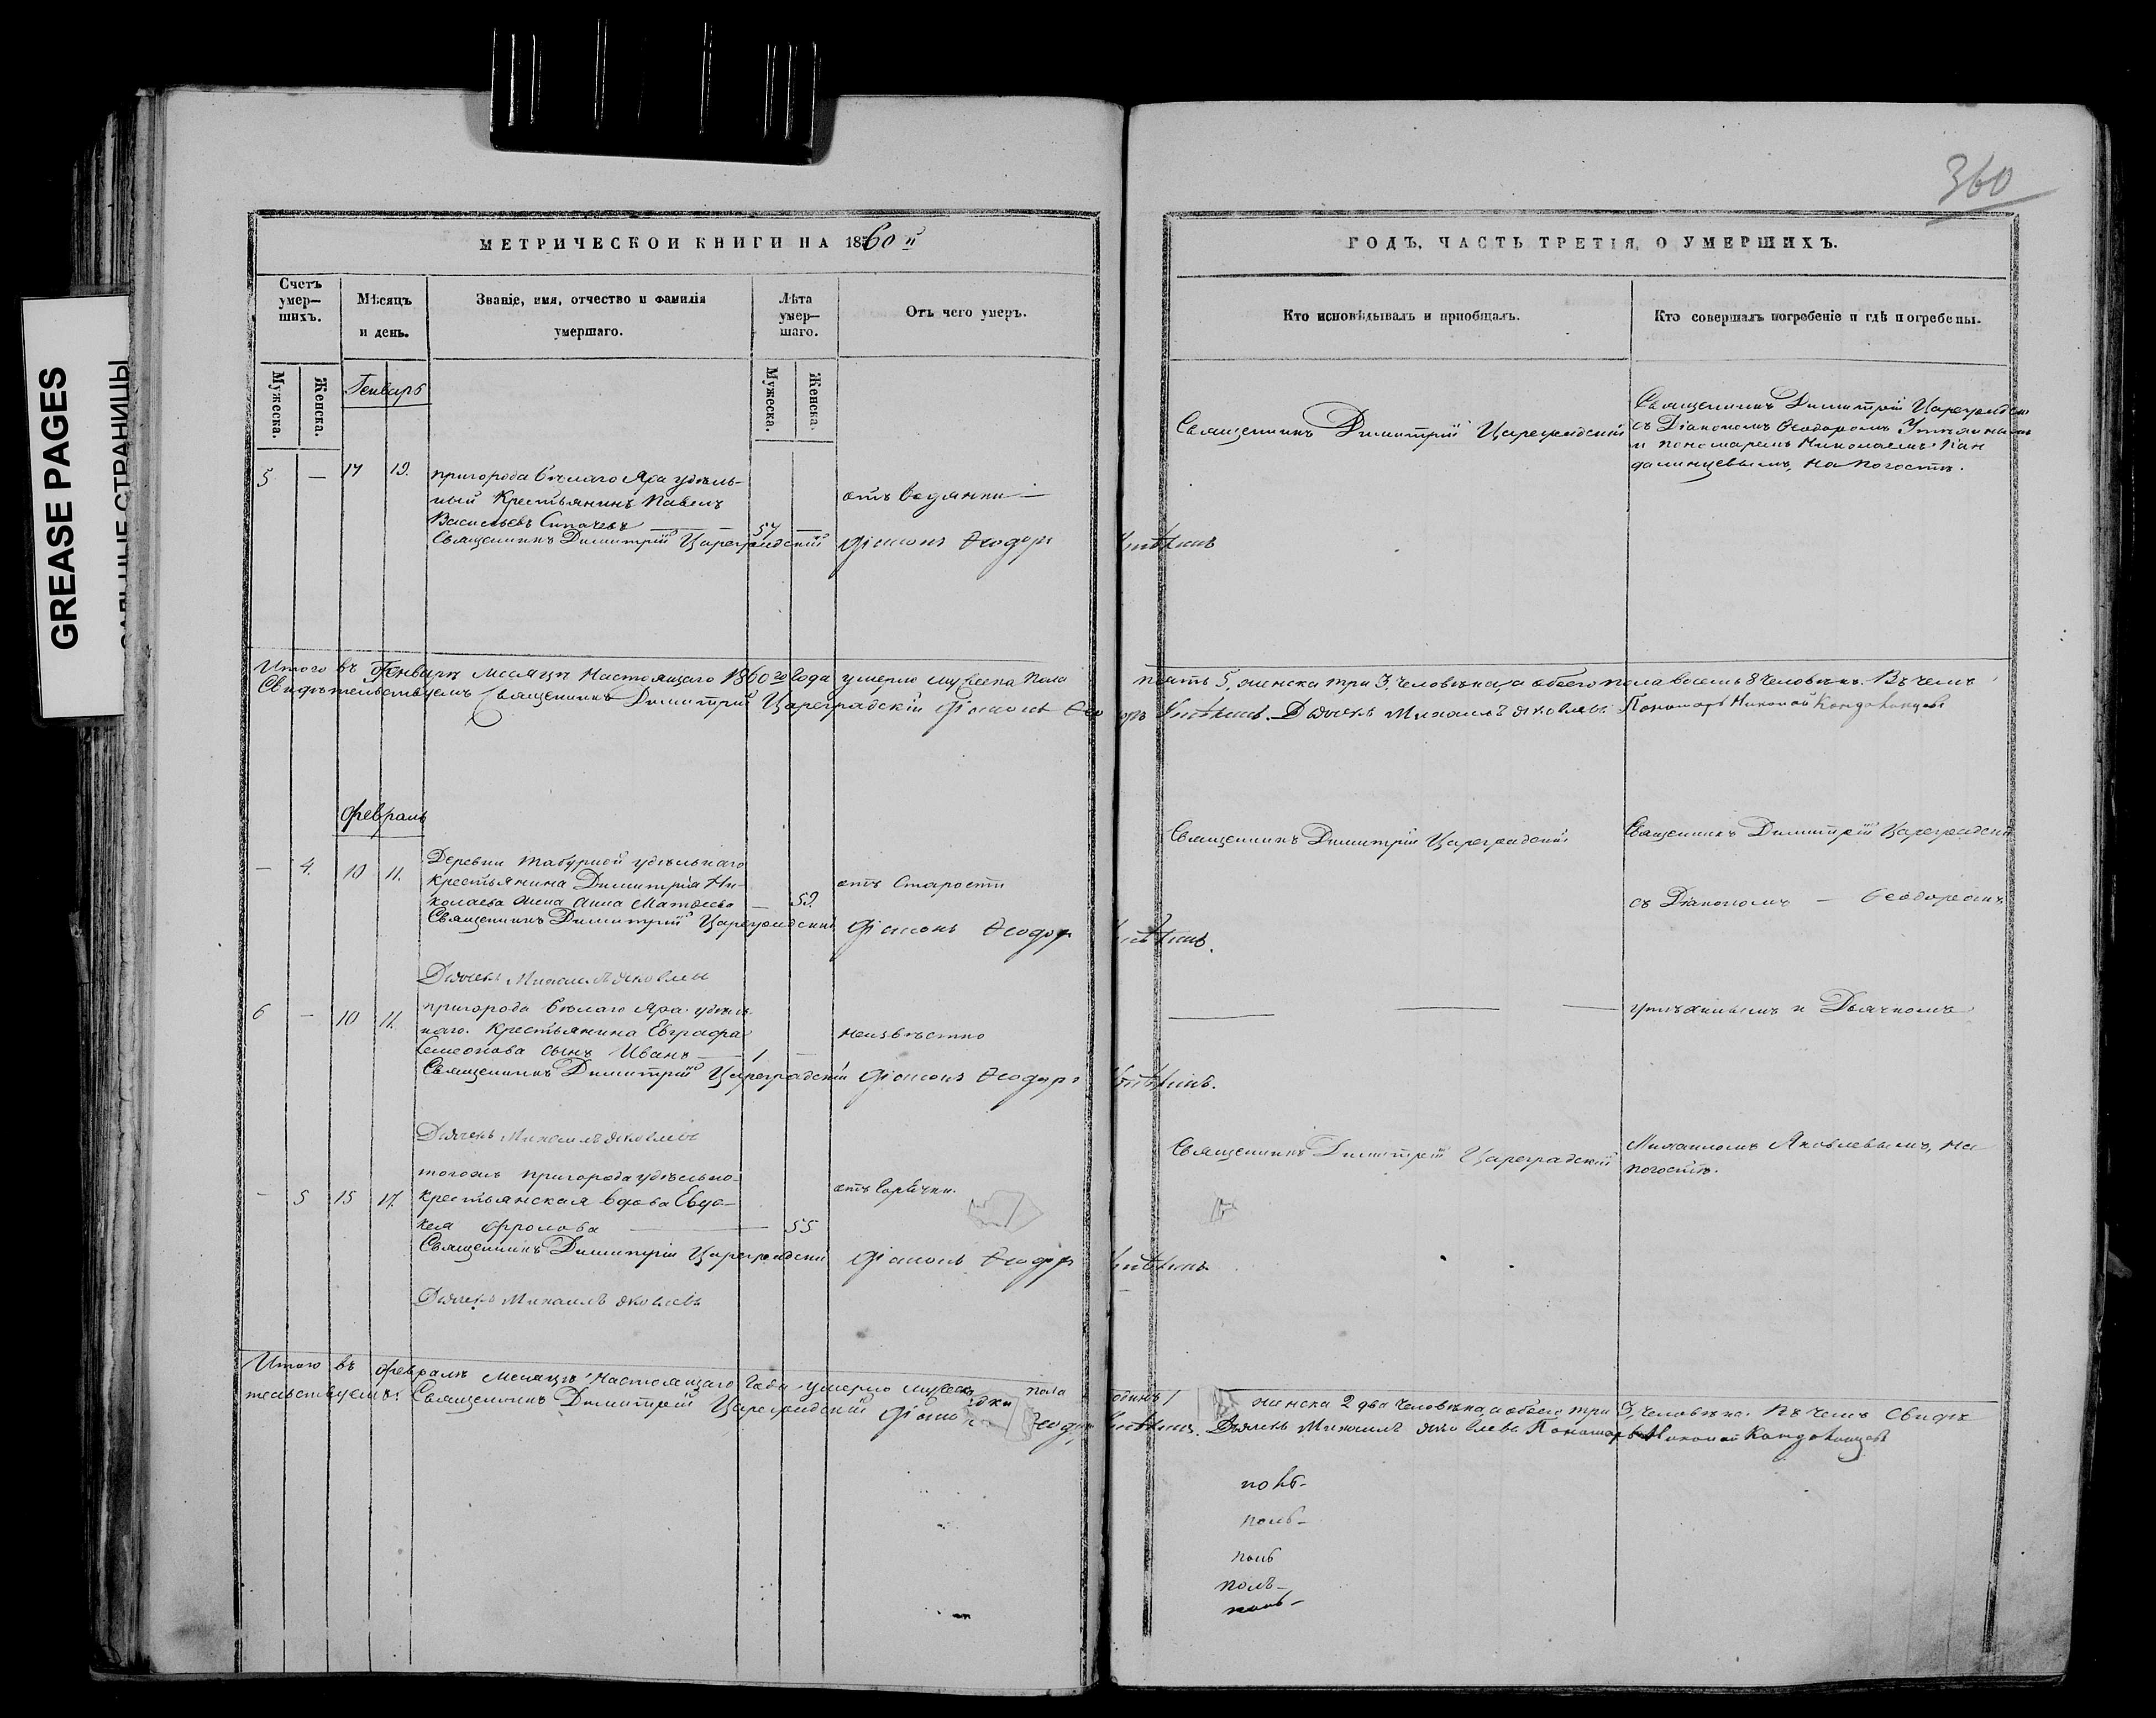 360
GREASE PAGES
САЛЬНЫЕ СТРАНИЦЫ
МЕТРИЧЕСКОИ КНИГИ НА 1860й
ГОДЪ, ЧАСТЬ ТРЕТІЯ, О УМЕРШИХЪ.
Счетъ умер—шихъ.
Мѣсяцъ и день.
Званіе, имя, отчество и фамилія умершаго.
Лѣта умер—шаго.
Отъ чего умеръ.
Кто исповѣдывалъ и приобщалъ.
Кто совершалъ погребеніе и гдѣ погребены.
Мужеска.
Женска.
Мужеска.
Женска.
Генварь
5 — 17 19.
пригорода Бѣлаго Яра удѣль-
ный Крестьянинъ Павелъ
Васильевъ — 57 —
отъ водянки —
Священникъ Димитрій Цареградскій
Священникъ Димитрій Цареградскій
съ Діакономъ Ѳеодоромъ
и пономаремъ Николаемъ Кан
далинцевымъ, на погостѣ.
Священникъ Димитрій Цареградскій Діаконъ Ѳеодоръ
Итого въ Генварѣ месяцѣ Настоящаго 1860го года умерло мужеска пола
пять 5, женска три 3, человѣка, а обоего пола восемь 8 человѣкъ. Въ чемъ
Свидѣтельствуемъ Священникъ Димитрій Цареградскій Діаконъ Ѳеодоръ
Дьячекъ Михаилъ Яковлевъ Пономарь Николай
февраль
— 4. 10 11.
Деревни удѣльнаго
крестьянина Димитрія Ни-
колаева жена Анна Матвеева — 59.
отъ Старости
Священникъ Димитрій Цареградскій
Священникъ Димитрій Цареградскій
съ Діакономъ — Ѳеодоромъ
Священникъ Димитрій Цареградскій Діаконъ Ѳеодоръ
Дьячекъ Михаилъ Яковлевъ
6 — 10 11.
пригорода Бѣлаго Яра удѣль-
наго Крестьянина Евграфа
Семенова сынъ Иванъ — 1 —
неизвѣстно
— — —
и Дьячкомъ
Священникъ Димитрій Цареградскій Діаконъ Ѳеодоръ
Дьячекъ Михаилъ Яковлевъ
— 5 15 17.
тогожъ пригорода удѣльно-
крестьянская вдова Евдо-
кея Фролова — 55
отъ горѣчки.
Священникъ Димитрій Цареградскій
Михаиломъ Яковлевымъ, на
погостѣ.
Священникъ Димитрій Цареградскій Діаконъ Ѳеодоръ
Дьячекъ Михаилъ Яковлевъ
Итого въ февралѣ месяцѣ Настоящаго года умерло мужеска пола
одинъ 1 женска 2 два человѣка, а обоего три 3, человѣка. Въ чемъ Свидѣ
тельствуемъ: Священникъ Димитрій Цареградскій
Дьячекъ Михаилъ Яковлевъ Пономарь Николай